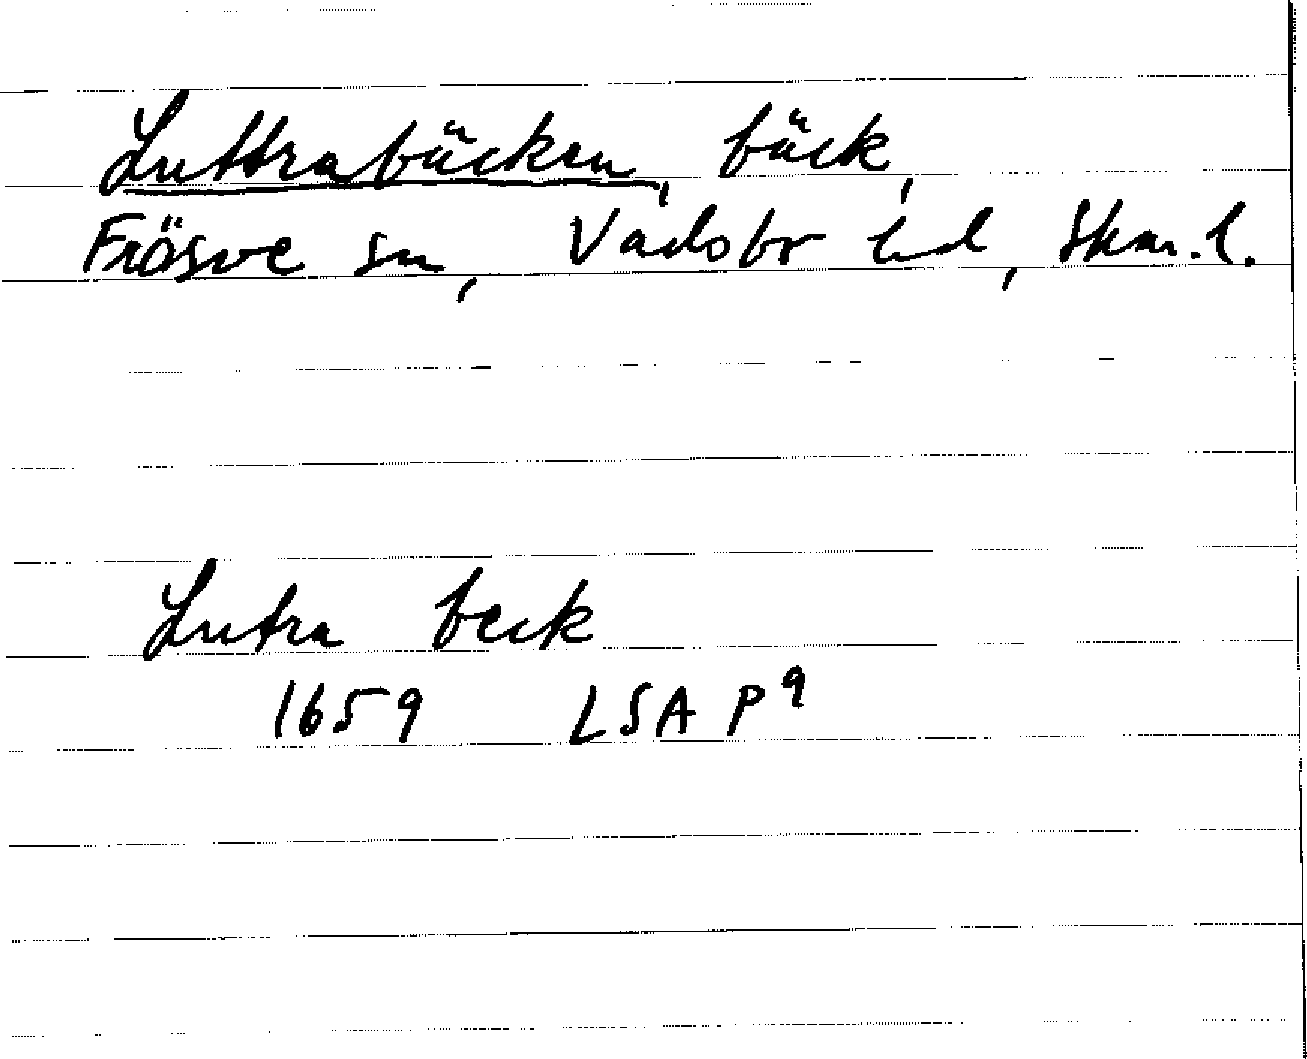 Luttrabäcken, bäck,
Frösve sn, Vadsbo hd, Skar. l.
Lutra beck
1659 LSA P9